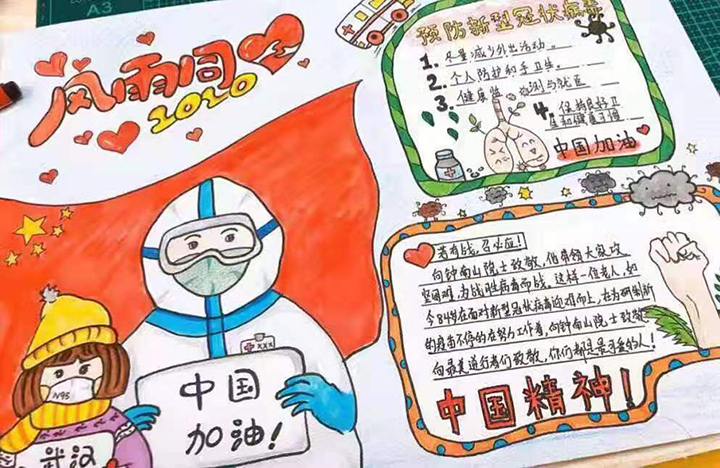 A3
风雨同心
2020
预防新型冠状病毒
1. 尽量减少外出活动。
2. 个人防护和手卫生。
3. 健康监测与就医
4. 保持良好卫
生和健康习惯
中国加油
若有战,召必应!
向钟南山院士致敬,他带领大家攻
坚困难,为战胜病毒而战。这样一位老人,如
今84岁在面对新型冠状病毒迎难而上,在为研制新
的疫苗不停的在努力工作着,向钟南山院士致敬
向最美逆行者们致敬,你们都是最可爱的人!
中国精神!
XXX
中国
加油!
N95
武汉